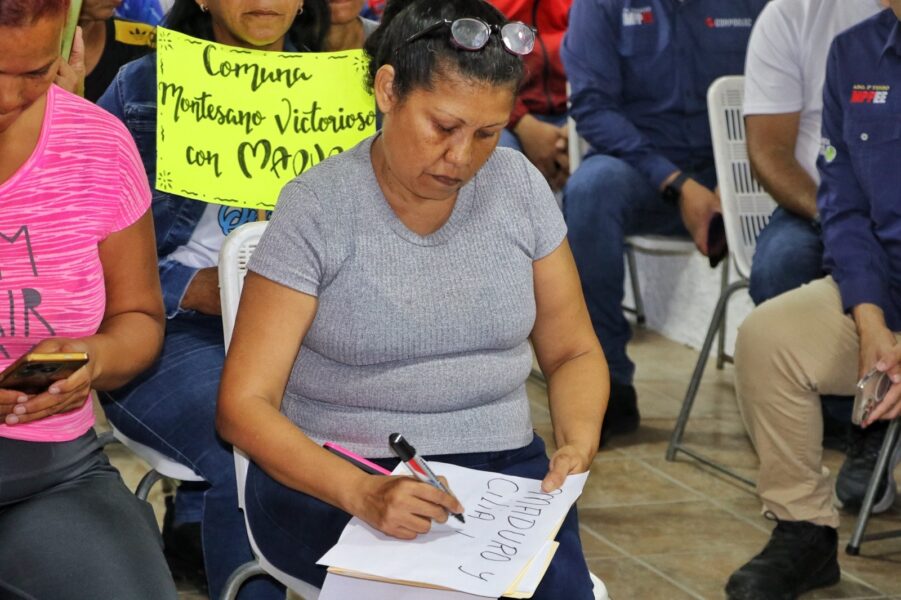 Comuna
Montesano Victorioso
con MADU
MADURO y
CiliA
MPPEE
CORPOELEC
MPPEE
AIR